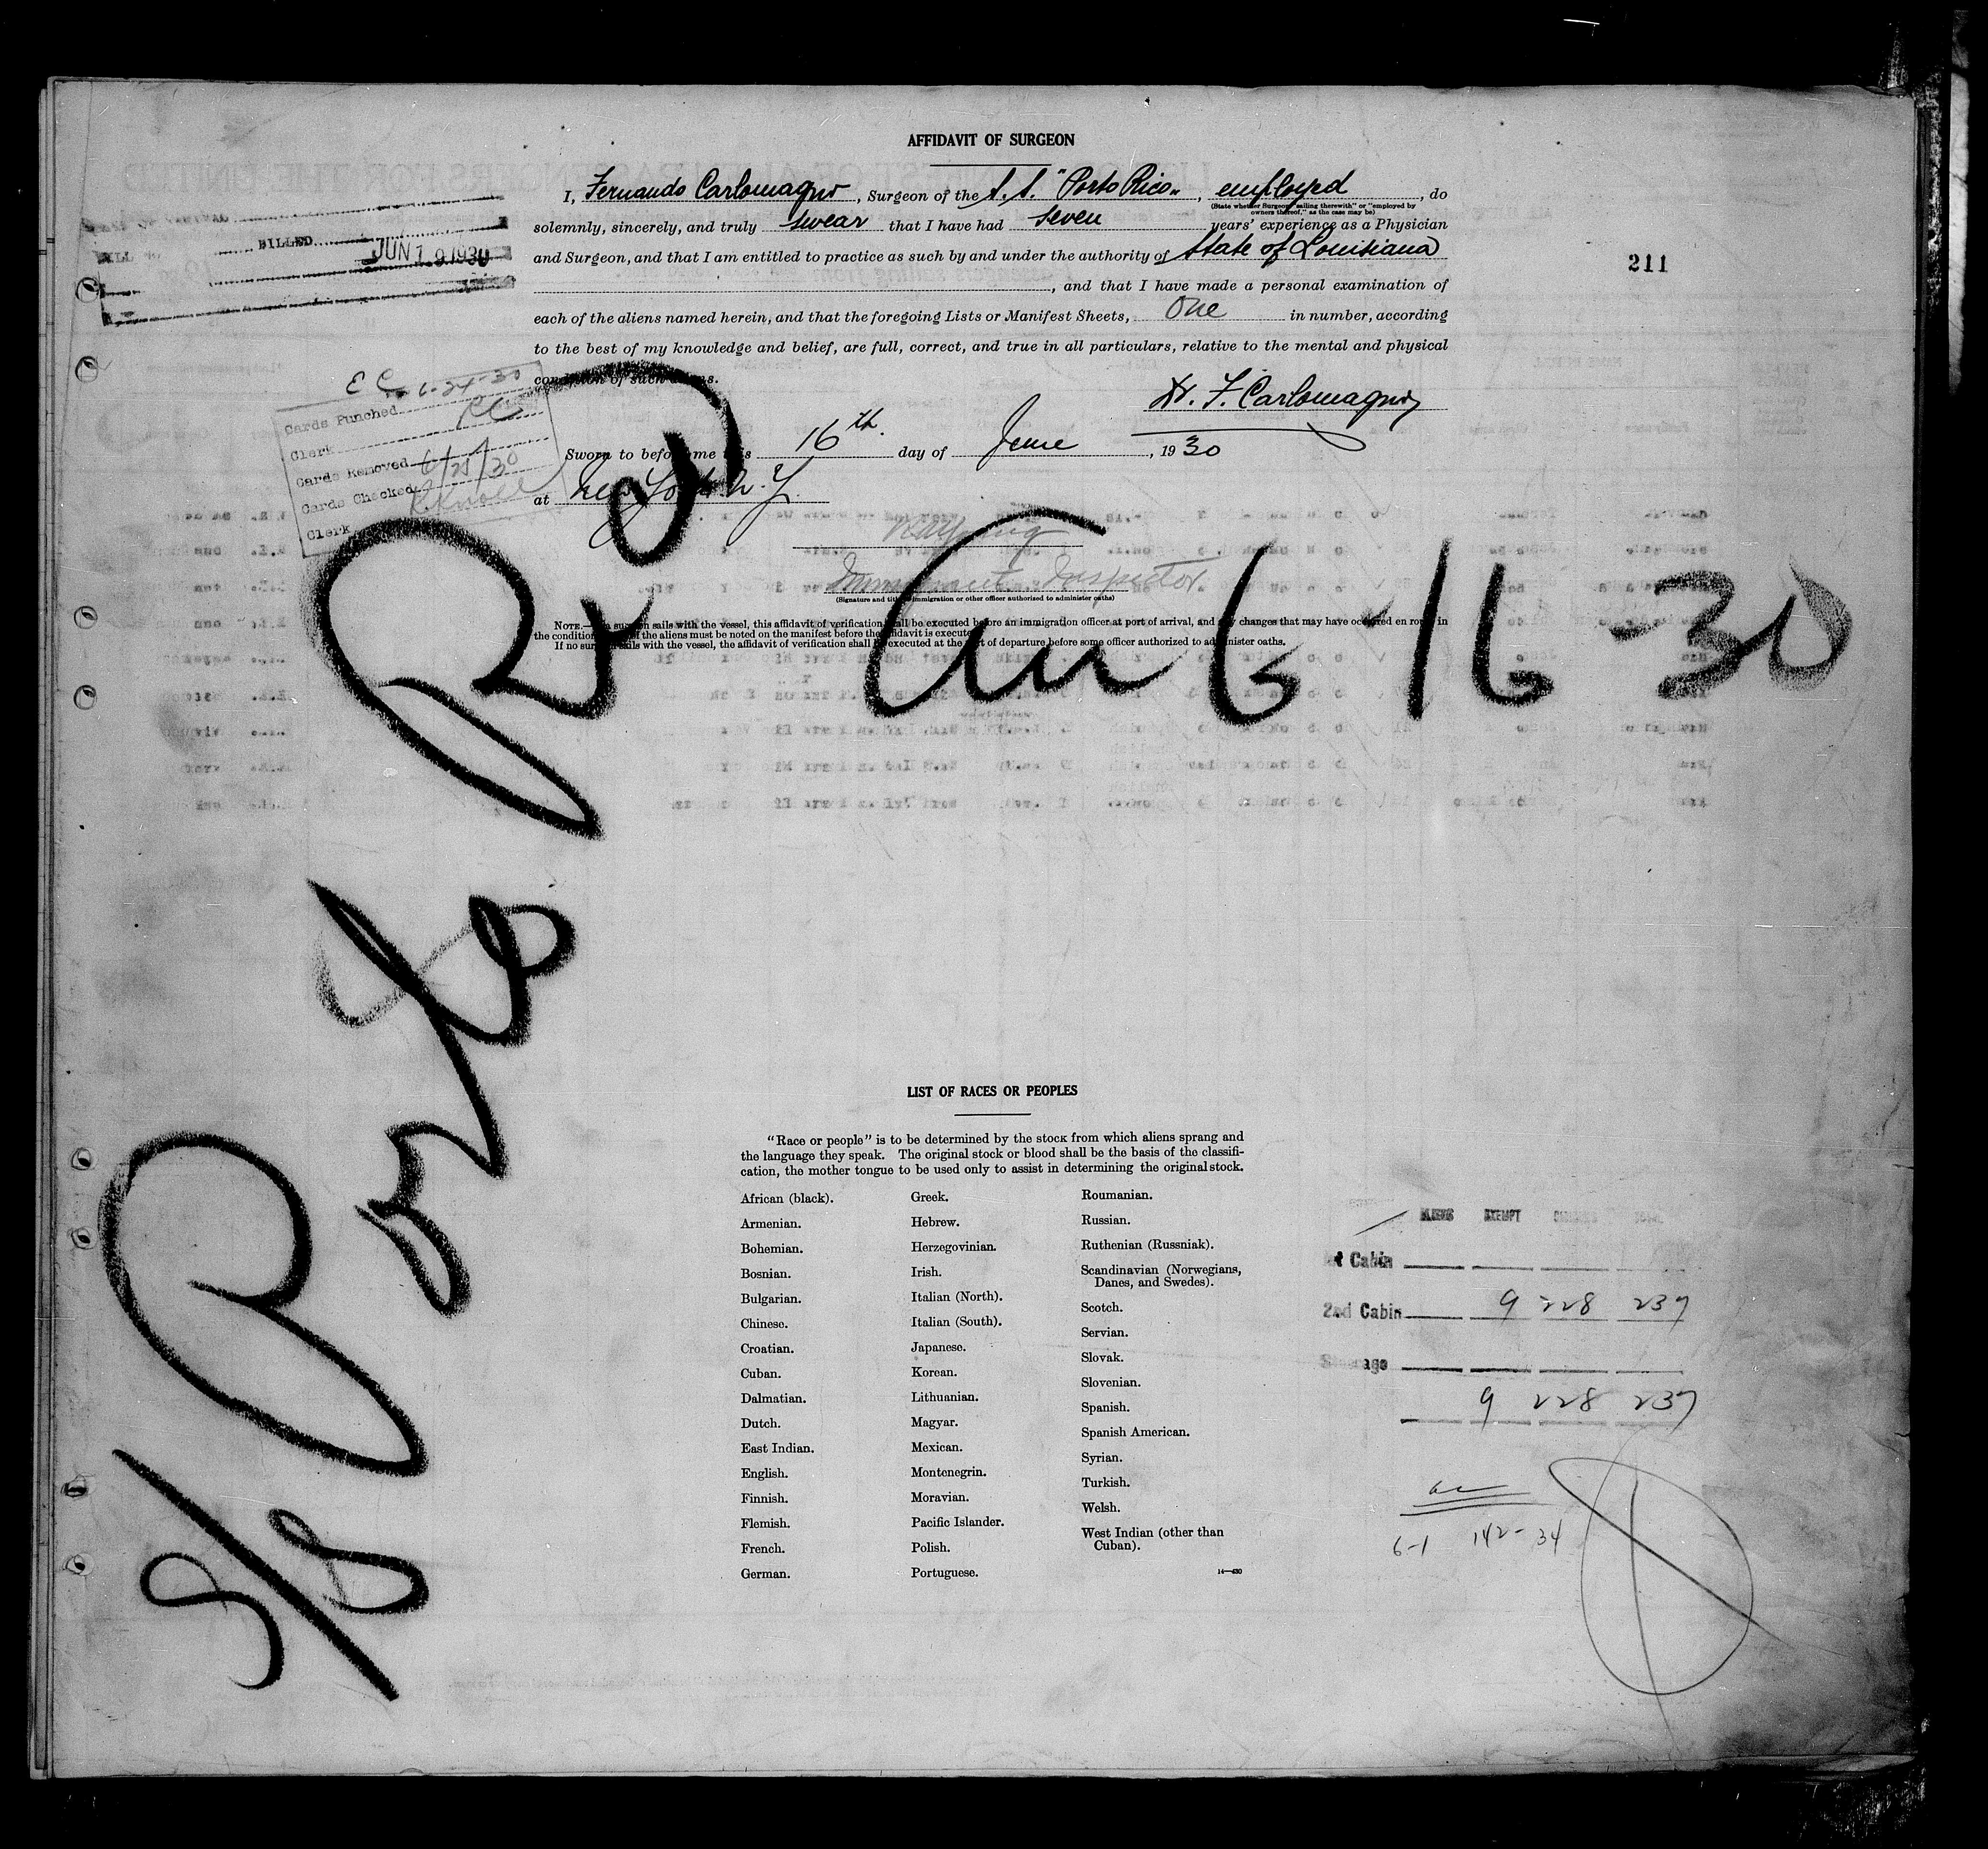 AFFIDAVIT OF SURGEON
I, Fernando Carlomagno, Surgeon of the S.S. "Porto Rico", employed, do
(State whether Surgeon "sailing therewith" or "employed by
owners thereof," as the case may be)
solemnly, sincerely, and truly swear that I have had seven years' experience as a Physician
and Surgeon, and that I am entitled to practice as such by and under the authority of State of Louisiana
, and that I have made a personal examination of
each of the aliens named herein, and that the foregoing Lists or Manifest Sheets, One in number, according
to the best of my knowledge and belief, are full, correct, and true in all particulars, relative to the mental and physical
condition of such aliens.
Dr. F. Carlomagno
Sworn to before me this 16th. day of June, 1930
at New York N.Y.
Immigrant Inspector
(Signature and title of immigration or other officer authorized to administer oaths)
NOTE.—If a surgeon sails with the vessel, this affidavit of verification shall be executed before an immigration officer at port of arrival, and any changes that may have occurred en route in
the condition of the aliens must be noted on the manifest before the affidavit is executed.
If no surgeon sails with the vessel, the affidavit of verification shall be executed at the port of departure before some officer authorized to administer oaths.
BILLED
JUN 19 1930
211
E C 6-24-30
Cards Punched
Clerk
Cards Removed 6/25/30
Cards Checked
Clerk
S/S Porto Rico
Arr 6-16-30
LIST OF RACES OR PEOPLES
"Race or people" is to be determined by the stock from which aliens sprang and
the language they speak. The original stock or blood shall be the basis of the classifi-
cation, the mother tongue to be used only to assist in determining the original stock.
African (black).
Armenian.
Bohemian.
Bosnian.
Bulgarian.
Chinese.
Croatian.
Cuban.
Dalmatian.
Dutch.
East Indian.
English.
Finnish.
Flemish.
French.
German.
Greek.
Hebrew.
Herzegovinian.
Irish.
Italian (North).
Italian (South).
Japanese.
Korean.
Lithuanian.
Magyar.
Mexican.
Montenegrin.
Moravian.
Pacific Islander.
Polish.
Portuguese.
Roumanian.
Russian.
Ruthenian (Russniak).
Scandinavian (Norwegians,
Danes, and Swedes).
Scotch.
Servian.
Slovak.
Slovenian.
Spanish.
Spanish American.
Syrian.
Turkish.
Welsh.
West Indian (other than
Cuban).
ALIENS EXEMPT
Cabin
2nd Cabin 9 228 237
Steerage
9 228 237
6-1 142-34